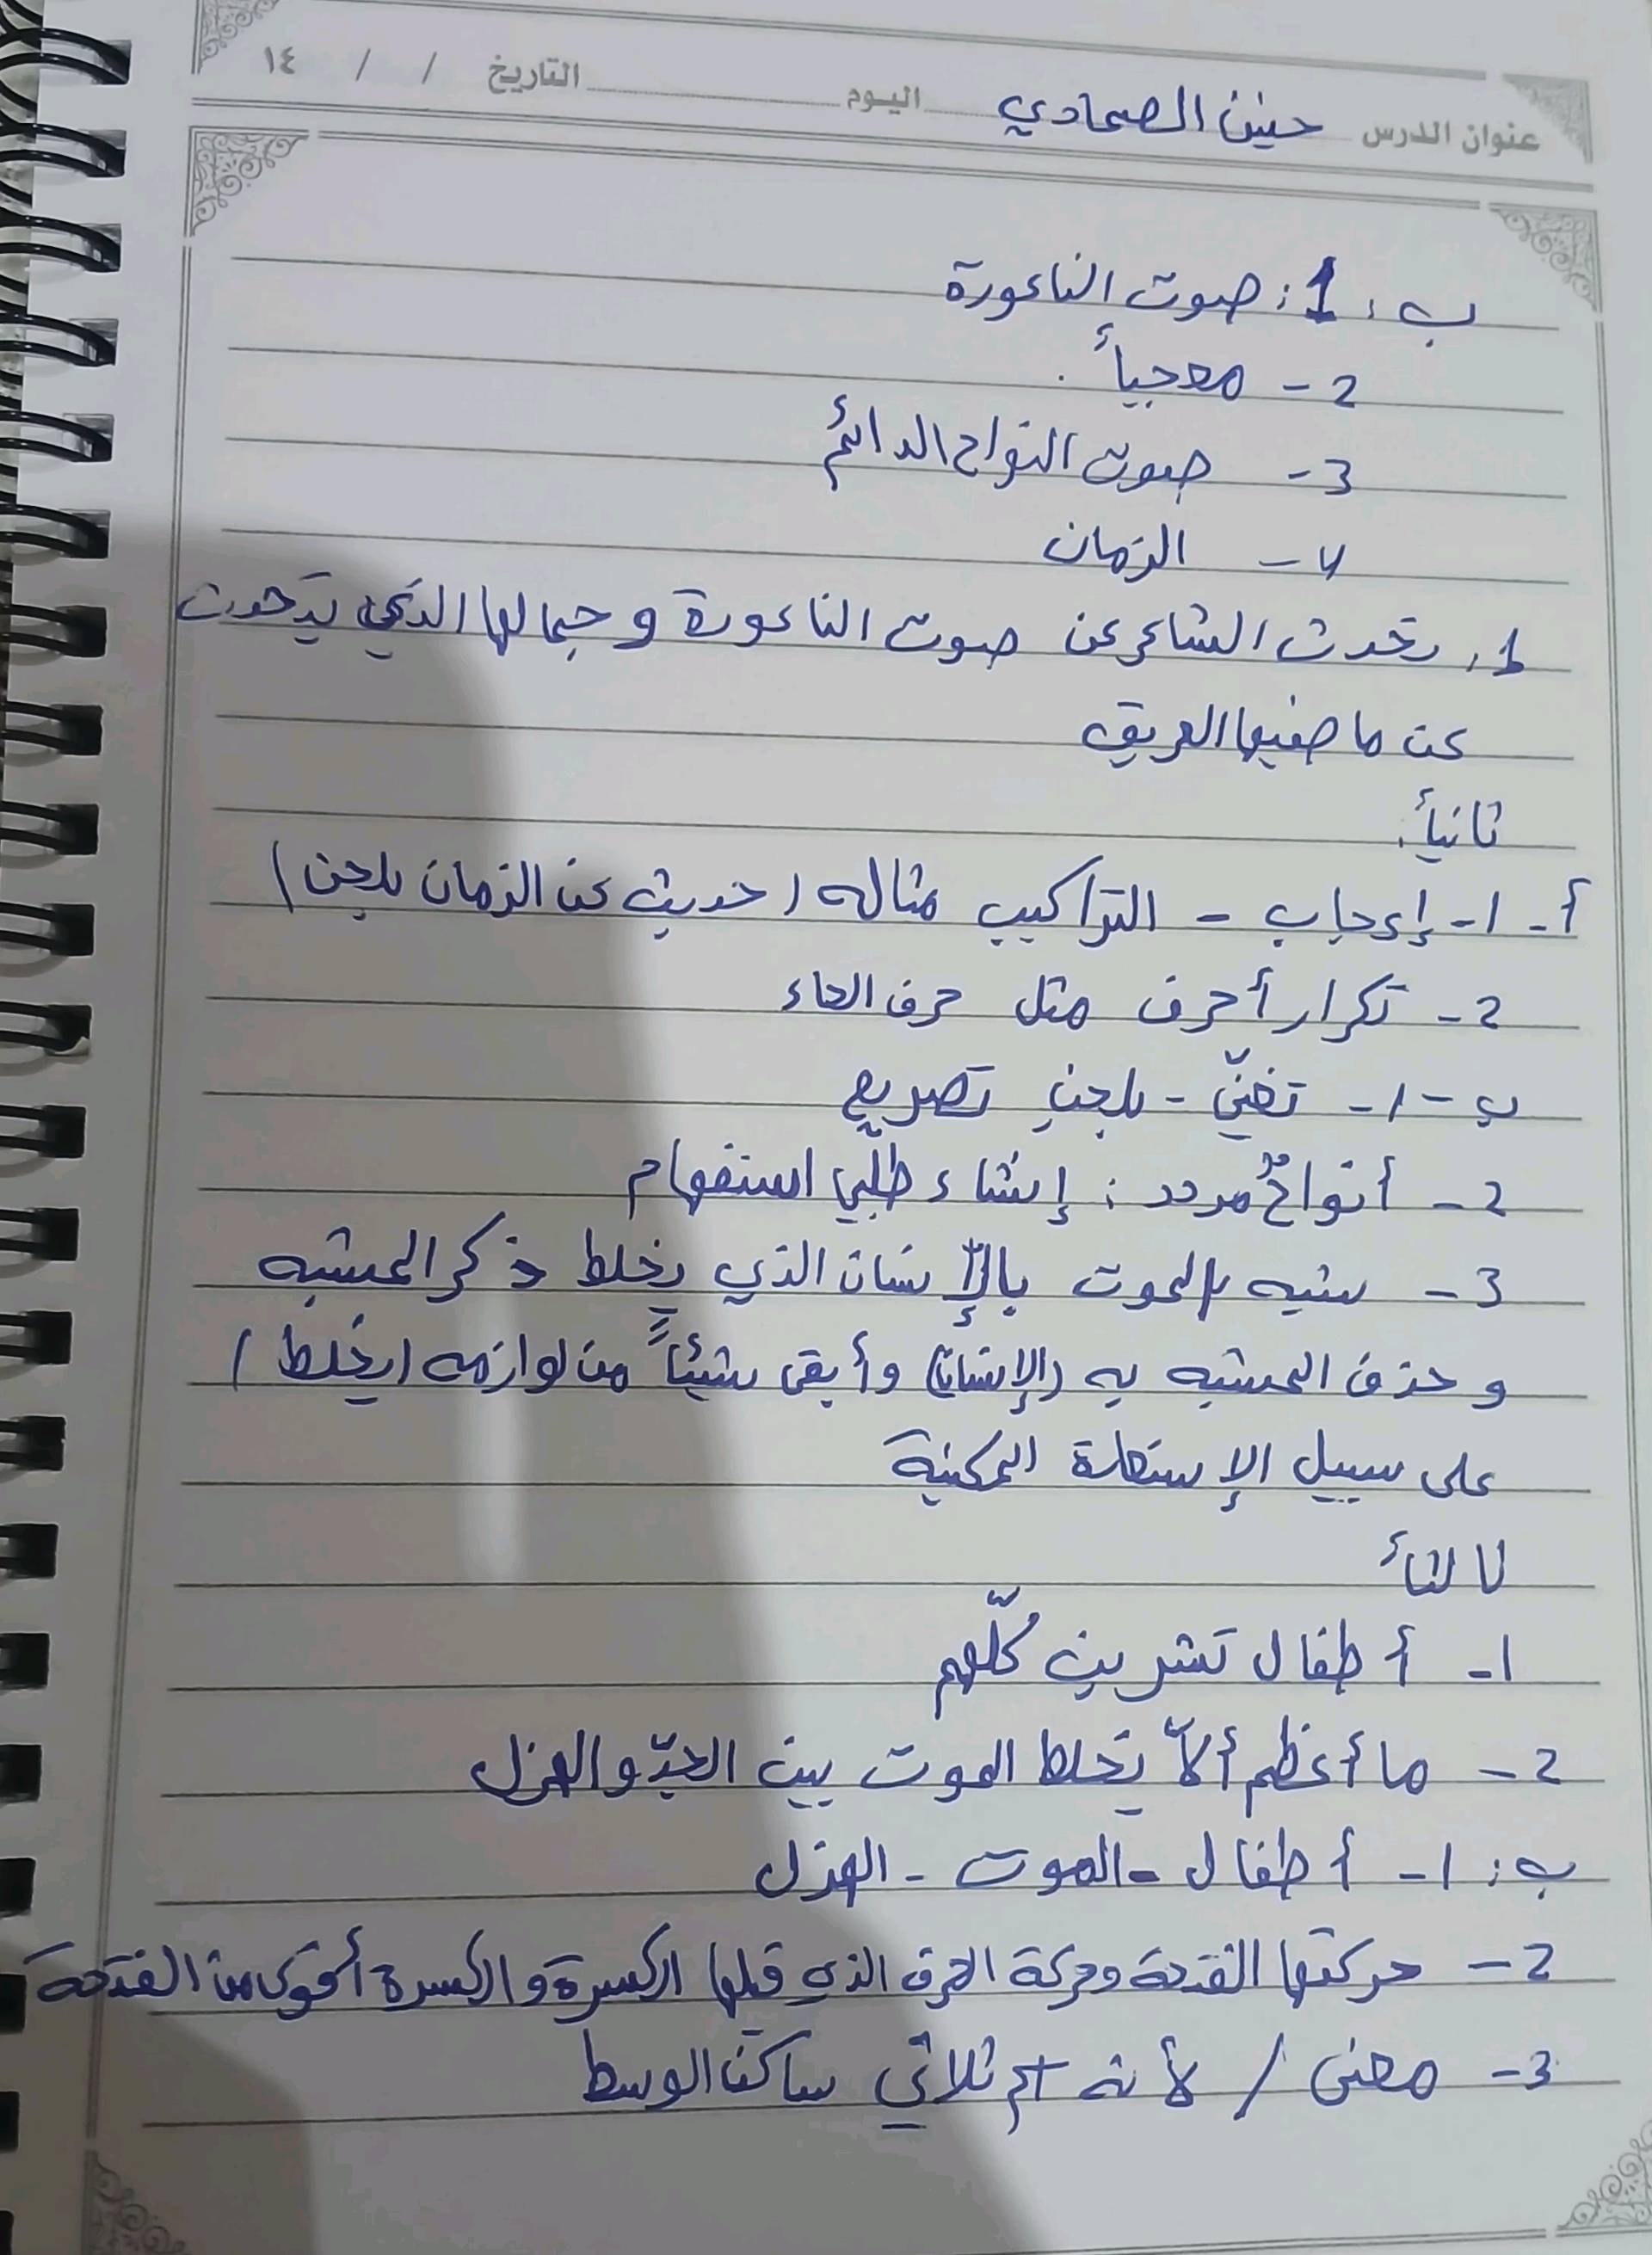 عنوان الدرس حنين الصمادي اليوم التاريخ / / ١٤
ب : 1 : صوت الناعورة
2 - معجباً .
3 - صوت النواح الدائم
4 - الزمان
1. تحدث الشاعر عن صوت الناعورة و جمالها الذي يتحدث
عن ماضيها العريق
ثانياً :
أ - ١ - إعجاب - التراكيب مثاله ( حديث عن الزمان بلحن )
2 - تكرار أحرف مثل حرف الحاء
ب - ١ - تغنّي - بلحنِ تصريع
2 - أنواحٌ مردد : إنشاء طلبي استفهام
3 - شبه الموت بالإنسان الذي يخلط ذكر المشبه
و حذف المشبه به (الإنسان) وأبقى شيئاً من لوازمه ( يخلط )
على سبيل الإستعارة المكنية
ثالثاً
١ - أطفال تشرين كلّهم
2 - ما أعظم ألاّ يخلط الموت بين الجدّ والهزل
ب : ١ - أطفال - الموت - الهزل
2 - حركتها الفتحة وحركة الحرف الذي قبلها الكسرة والكسرة أقوى من الفتحة
3 - معنى / لأنه اسم ثلاثي ساكن الوسط